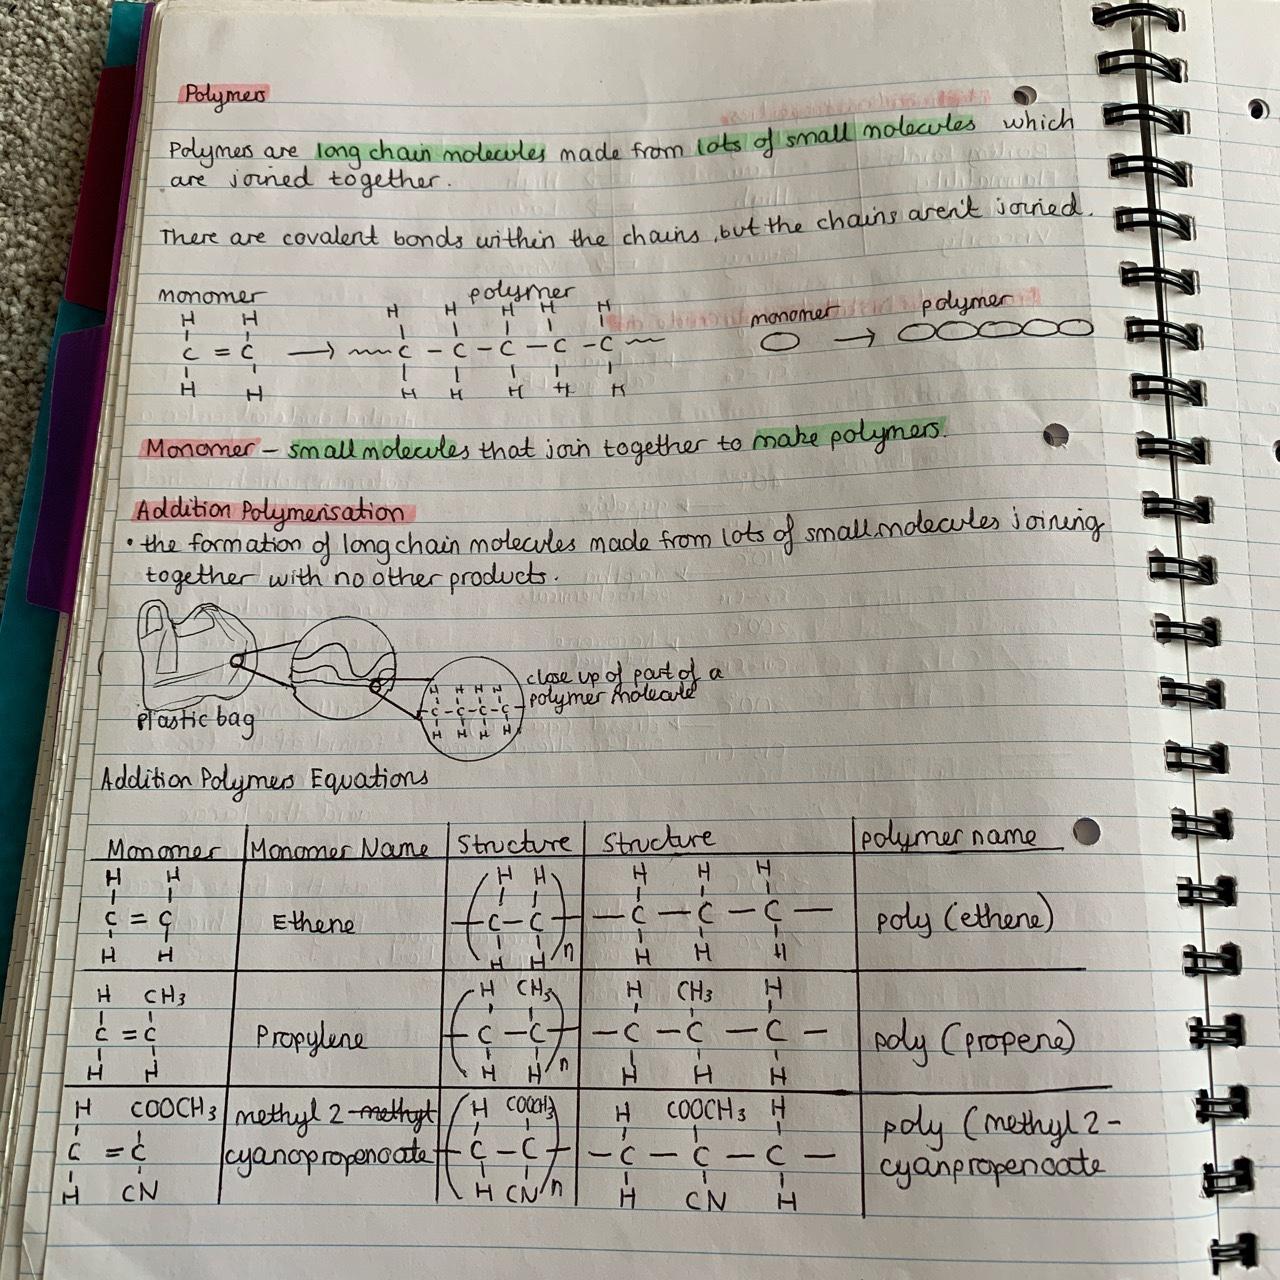 Polymers
Polymers are long chain molecules made from lots of small molecules which
are joined together.
There are covalent bonds within the chains, but the chains aren't joined.
monomer polymer
H H H H H H H
C = C → C - C - C - C - C
H H H H H H H
monomer polymer
→
Monomer - small molecules that join together to make polymers.
Addition Polymerisation
• the formation of long chain molecules made from lots of small molecules joining
together with no other products.
plastic bag
H H H H
-C-C-C-C-
H H H H
close up of part of a
polymer molecule
Addition Polymers Equations
Monomer Monomer Name Structure Structure polymer name
H H H H H H H
C = C Ethene (-C-C-)n -C-C-C- poly (ethene)
H H H H H H H
H CH3 H CH3 H CH3 H
C = C Propylene (-C-C-)n -C-C-C- poly (propene)
H H H H H H H
H COOCH3 methyl 2-methyl H COOCH3 H COOCH3 H poly (methyl 2-
C = C cyanopropenoate (-C-C-)n -C-C-C- cyanpropenoate
H CN H CN H CN H